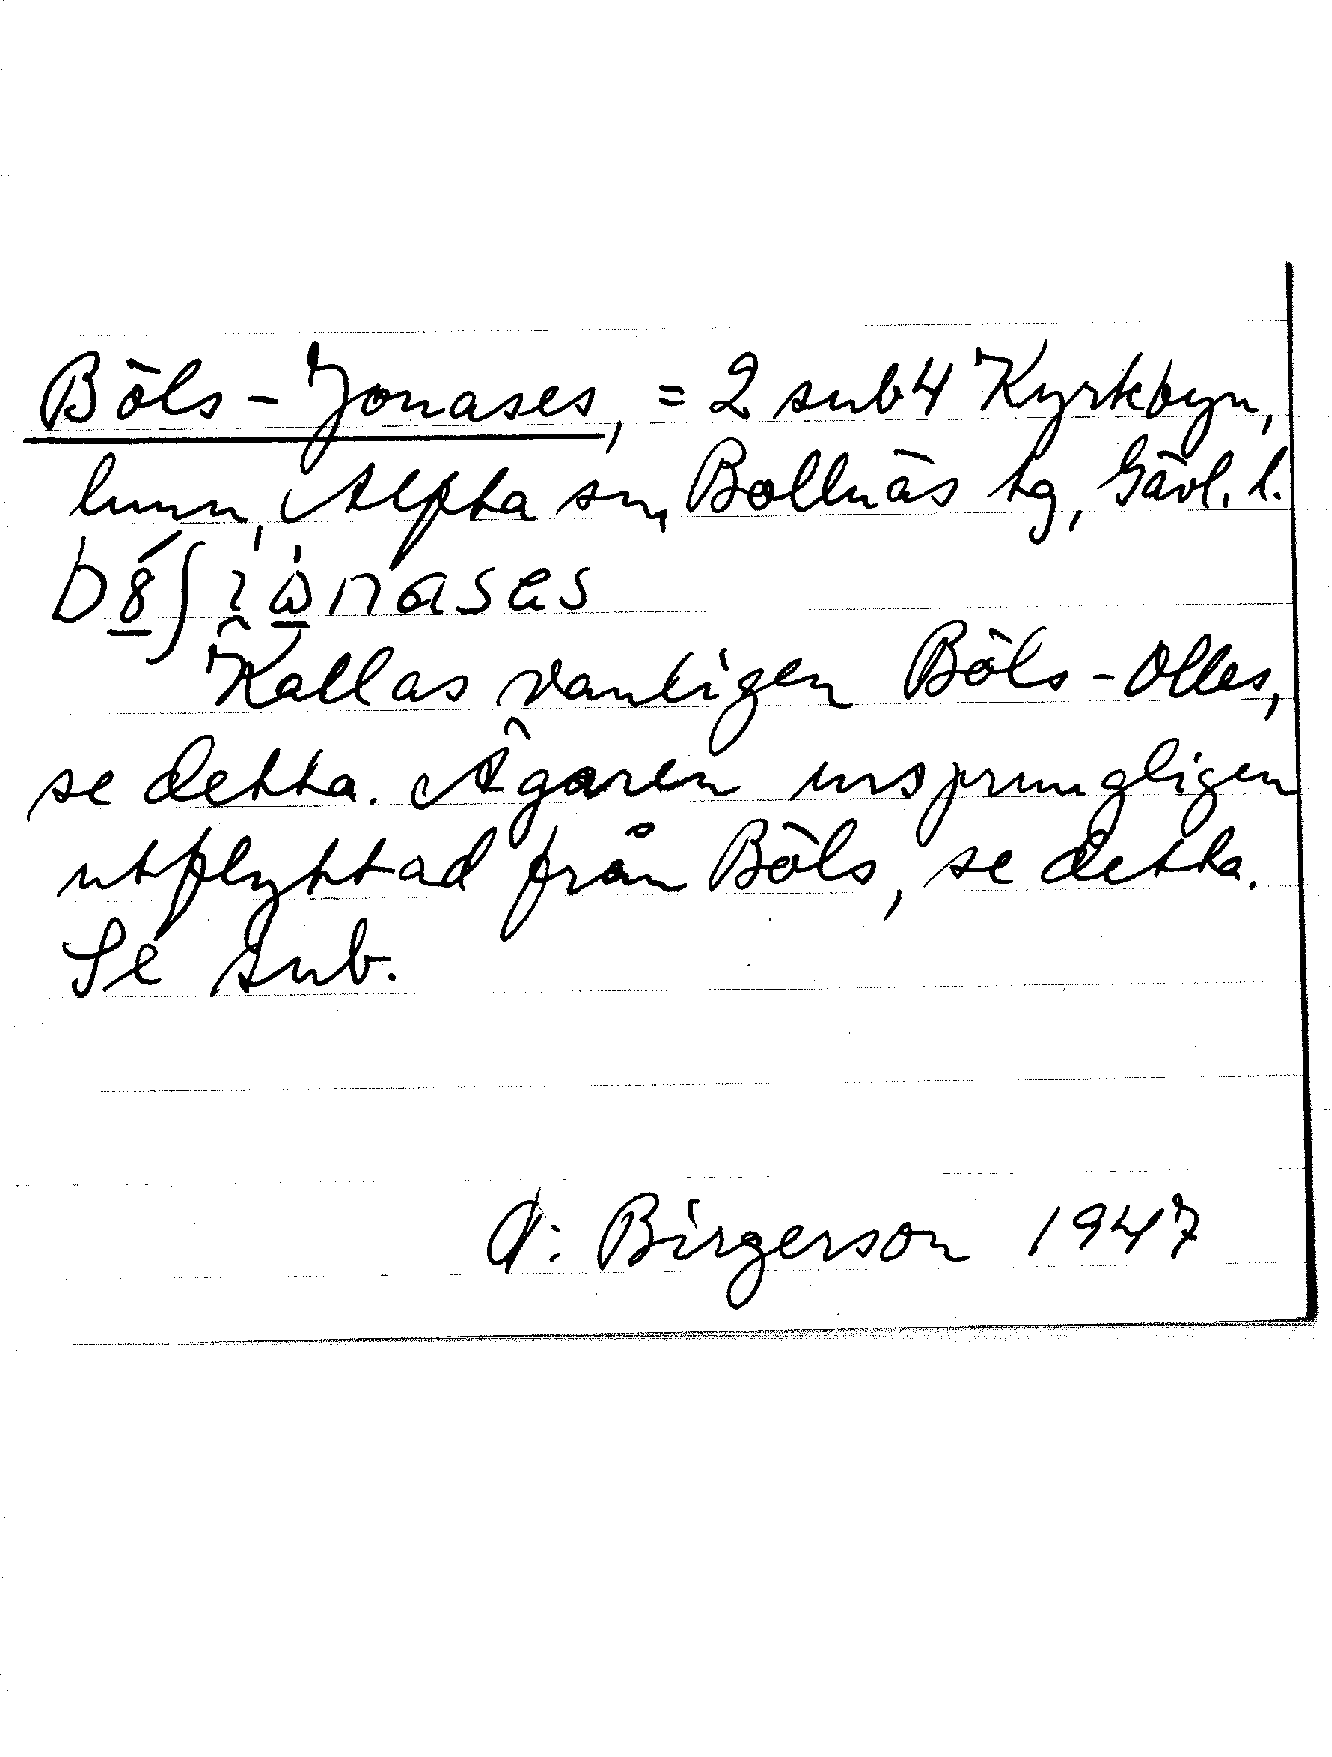 Böls-Jonases, = 2 sub 4 Kyrkbyn,
hmn, Alfta sn, Bollnäs tg, Gävl. l.
Kallas vanligen Böls-Olles,
se detta. Ägaren ursprungligen
utflyttad från Böls, se detta.
Se sub.
A: Birgerson 1947